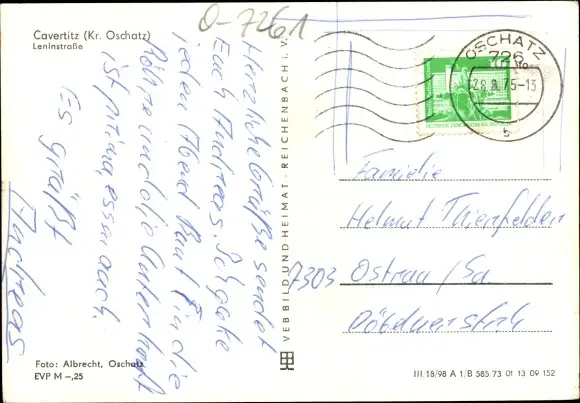 O-7261
Cavertitz (Kr. Oschatz)
Leninstraße
Herzliche Grüße sendet
Euch Andreas. Ich gehe
jeden Abend Punkt in die
und die Unterkunft
ist prima, essen auch.
Es grüßt
Andreas
Foto: Albrecht, Oschatz
EVP M –,25
VEB BILD UND HEIMAT · REICHENBACH i. V.
OSCHATZ
726
28.8.75-13
b
DEUTSCHE DEMOKRATISCHE
Familie
Helmut Thienfelder
7303 Ostrau/Sa
III/18/98 A 1/B 585 73 01 13 09 152